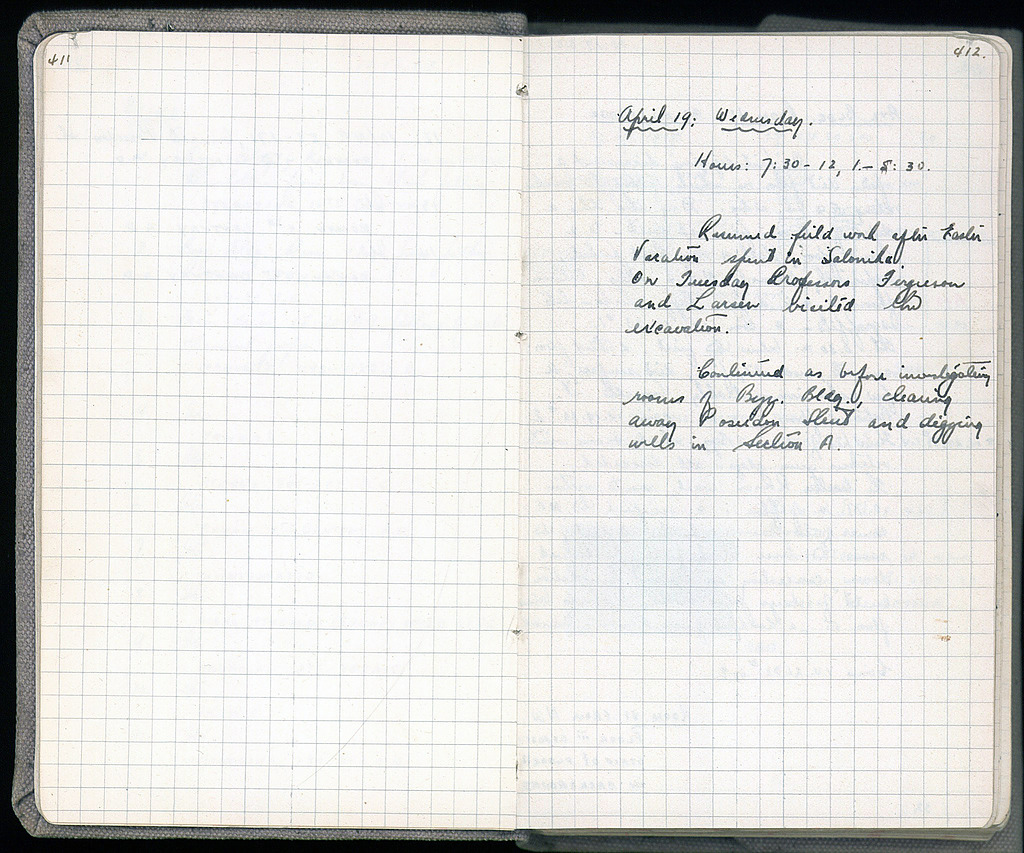 411
412.
April 19: Wednesday.
Hours: 7:30 - 12, 1. - 5:30.
Resumed field work after Easter
Vacation spent in Salonika
On Tuesday Professors Ferguson
and Larsen visited the
excavation.
Continued as before investigating
rooms of Byz. Bldg., clearing
away Poseidon Street and digging
wells in Section A.